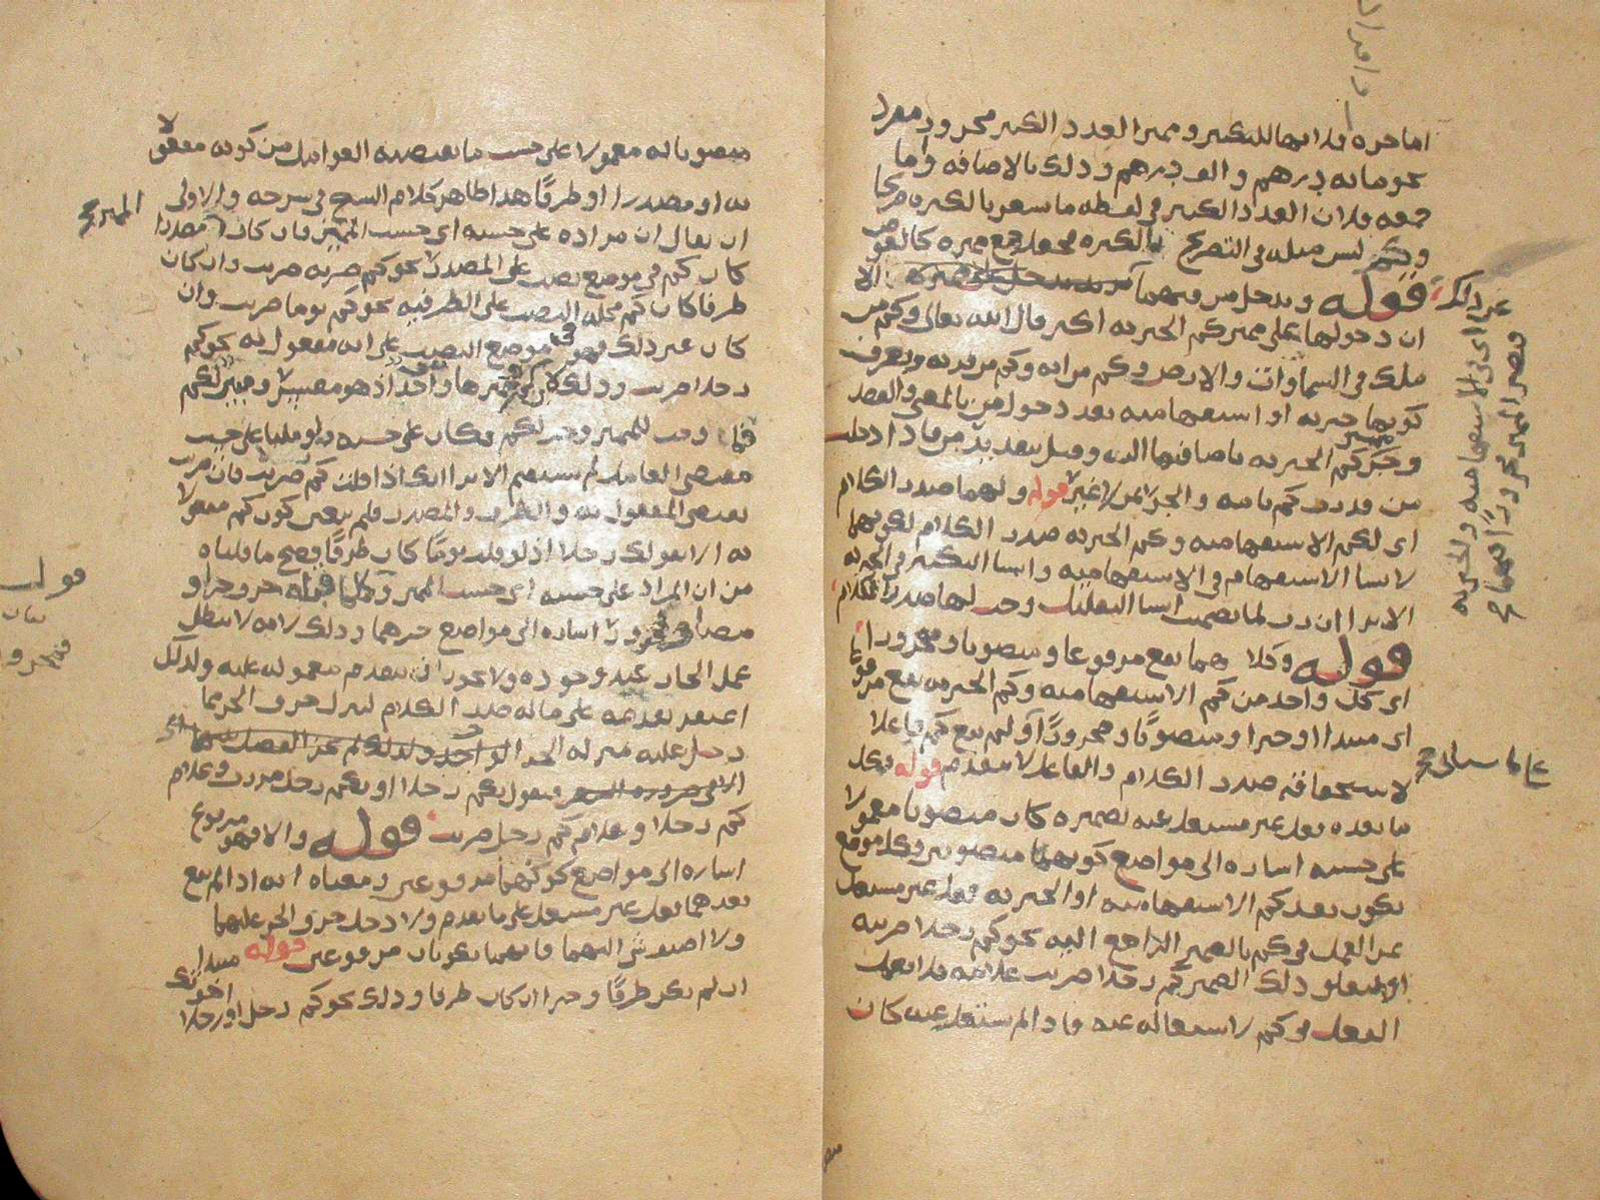 اما جره فلانها للتكثير ومميز العدد الكثير مجرور مفرد
نحو مائة درهم والف درهم وذلك بالاضافة واما
جمعه فلان العدد الكثير في لفظه ما يشعر بالكثرة صريحا
وكم ليس مثله في التصريح بالكثرة فجعل جمع مميزه كالعوض
عن ذلك قوله وتدخل من فيهما الا
ان دخولها على مميز كم الخبرية اكثر قال الله تعالى وكم من
ملك في السماوات والارض وكم من اية وكم من قرية ويعرف
كونها خبرية او استفهامية بعد دخول من بالمعنى والقصد
وجر مميز كم الخبرية باضافتها اليه وقيل بتقدير من فاذا دخلت
من قدرت كم بائنة والجر بمن لا غير قوله ولهما صدر الكلام
اي لكم الاستفهامية وكم الخبرية صدر الكلام لكونهما
لانشا الاستفهام في الاستفهامية وانشا التكثير في الخبرية
الا ترا ان رب لما تضمنت انشا التقليل وجب لها صدر الكلام
قوله وكلاهما يقع مرفوعا ومنصوبا ومجرورا
اي كل واحد من كم الاستفهامية وكم الخبرية يقع مرفوعا
اي مبتدا او خبرا ومنصوبا ومجرورا ولم يقع كم فاعلا
لاستحقاقه صدر الكلام والفاعل لا يتقدم قوله فكل
ما بعده فعل غير مشتغل عنه بضميره كان منصوبا معمولا
على حسبه اشارة الى مواضع كونهما منصوبين وكل موضع
يكون بعد كم الاستفهامية او الخبرية فعل غير مشتغل
عن العمل في كم بالضمير الراجع اليه نحو كم رجلا ضربته
او بمتعلق ذلك الضمير كم رجلا ضربت غلامه فلا يعمل
الفعل في كم لاشتغاله عنه واذا لم يشتغل عنه كان
اي في الاستفهامية والخبرية
منصوبا به معمولا على حسب ما يقتضيه العوامل من كونه مفعولا
به او مصدرا او ظرفا هذا ظاهر كلام الشيخ في شرحه والاولى
ان يقال ان مراده على حسبه اي حسب المميز فان كان المميز مصدرا
كان كم في موضع نصب على المصدر نحو كم ضربة ضربت وان كان
ظرفا كان كم محله النصب على الظرفية نحو كم يوما ضربت وان
كان غير ذلك فهو في موضع النصب على انه مفعول به نحو كم
رجلا ضربت وذلك لان كم ومميزها واحد اذ هو مفسر ومبين لكم
فما وجب للمميز وجب لكم فكان على حسبه ولو قلنا على حسب
مقتضى العامل لم يستقم الا ترا انك اذا قلت كم ضربت فان ضربت
يقتضي المفعول به والظرف والمصدر فلم يتعين كون كم مفعولا
به الا بقولك رجلا اذ لو قلت يوما كان ظرفا فصح ما قلناه
من ان المراد على حسبه اي حسب المميز وكل ما قبله حرف جر او
مضاف فمجرور اشارة الى مواضع جرهما وذلك لانه لا يبطل
عمل الجار عند وجوده ولا يجوز ان يتقدم معموله عليه ولذلك
اغتفر تقدمه على ما له صدر الكلام لتنزل حرف الجر مما
دخل عليه منزلة الجزء الواحد ولذلك لم يجز الفصل بينهما
فتقول بكم رجلا او بكم رجل مررت وغلام
كم رجلا وغلام كم رجل ضربت قوله والا فهو مرفوع
اشارة الى مواضع كونهما مرفوعين ومعناه انه اذا لم يقع
بعدهما فعل غير مشتغل على ما تقدم ولا دخل حرف الجر عليهما
ولا اضيف شي اليهما فانهما يكونان مرفوعين قوله مبتدا
ان لم يكن ظرفا وخبرا ان كان ظرفا وذلك نحو كم رجل او رجلا
اخوتك